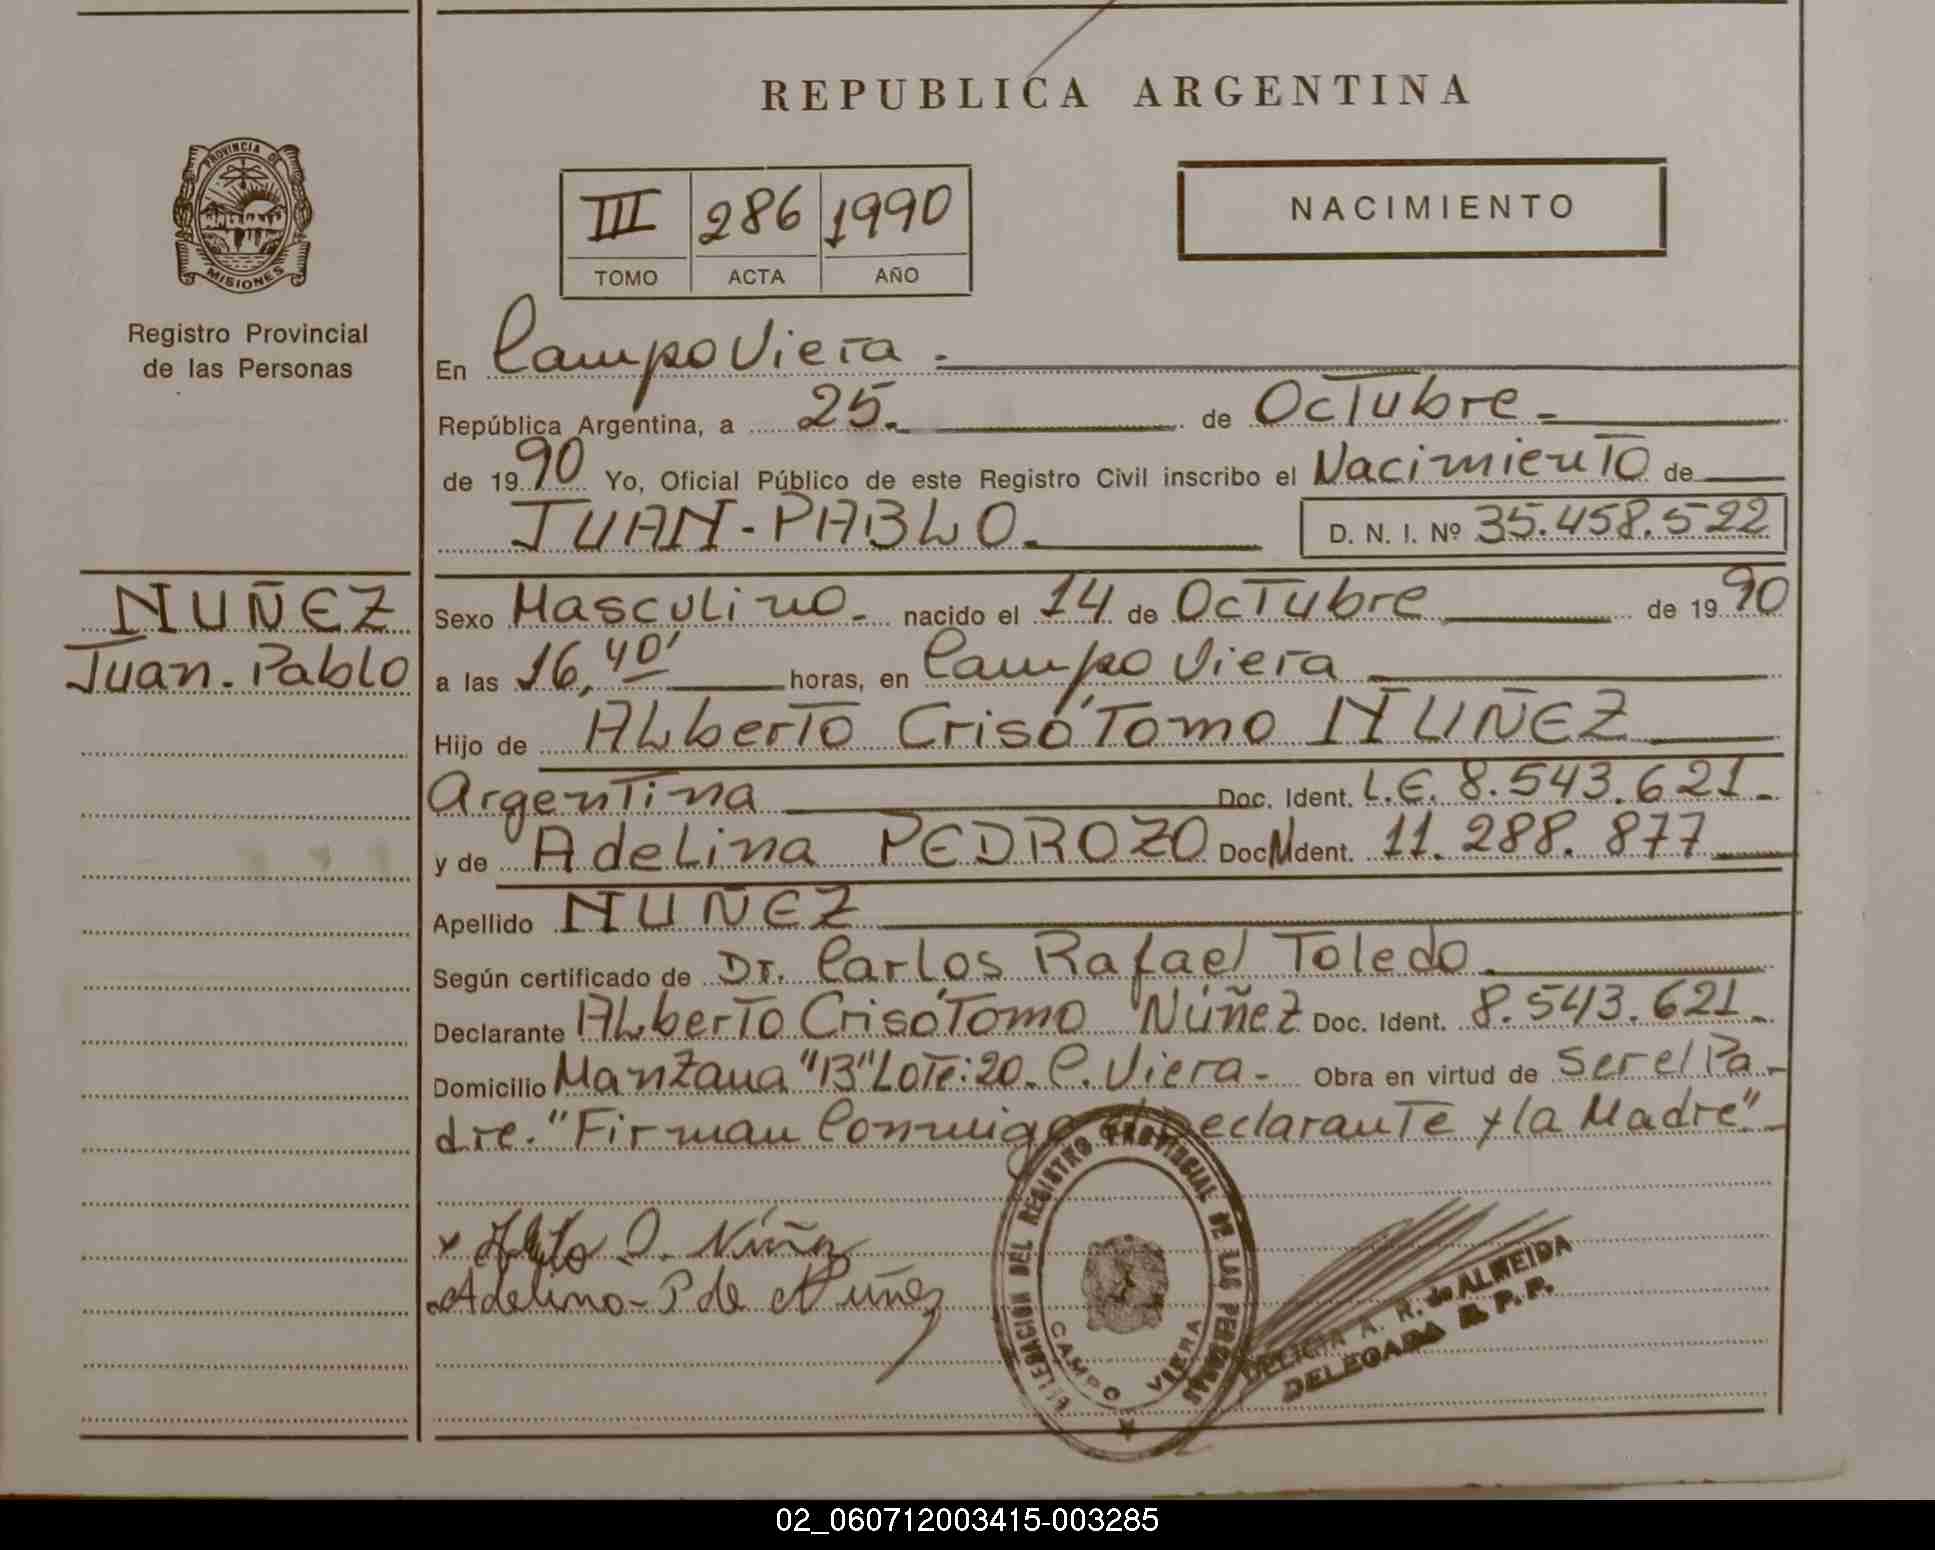 REPUBLICA ARGENTINA
PROVINCIA DE
MISIONES
Registro Provincial
de las Personas
III 286 1990
TOMO ACTA AÑO
NACIMIENTO
En Campo Viera.
República Argentina, a 25. de Octubre.
de 1990 Yo, Oficial Público de este Registro Civil inscribo el Nacimiento de
JUAN-PABLO. D. N. I. Nº 35.458.522
NUÑEZ
Juan. Pablo
Sexo Masculino. nacido el 14 de Octubre de 1990
a las 16,40' horas, en Campo Viera
Hijo de Alberto Crisótomo NUÑEZ
Argentina Doc. Ident. L.E. 8.543.621.
y de Adelina PEDROZO Doc. Ident. 11.288.877
Apellido NUÑEZ
Según certificado de Dr. Carlos Rafael Toledo
Declarante Alberto Crisótomo Núñez Doc. Ident. 8.543.621.
Domicilio Manzana "13" Lote: 20. C. Viera. Obra en virtud de Ser el Pa-
dre. "Firman Conmigo el Declarante y la Madre"
Núñez
Adelina P de Nuñez
DELEGACION DEL REGISTRO PROVINCIAL DE LAS PERSONAS
CAMPO VIERA
DELICIA A. R. de ALMEIDA
DELEGADA R. P. P.
02_060712003415-003285